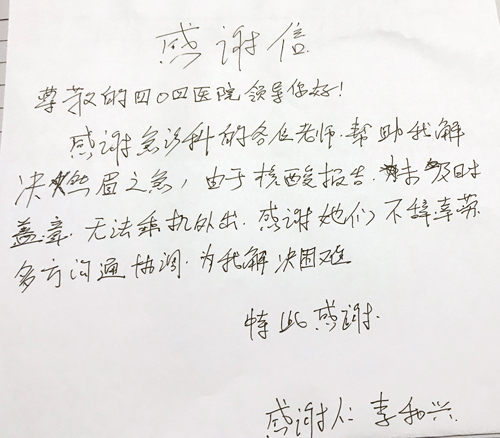 感谢信
尊敬的四0四医院领导你好!
感谢急诊科的各位老师.帮助我解
决燃眉之急,由于核酸报告.未及时
盖章.无法乘机外出.感谢她们不辞辛劳
多方沟通协调.为我解决困难
特此感谢.
感谢人 李和兴